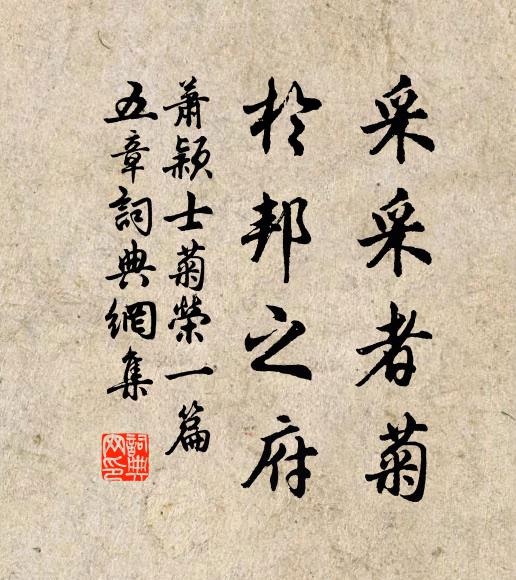 采采者菊
於邦之府
蕭穎士菊榮一篇
五章詞典網集
詞典网印